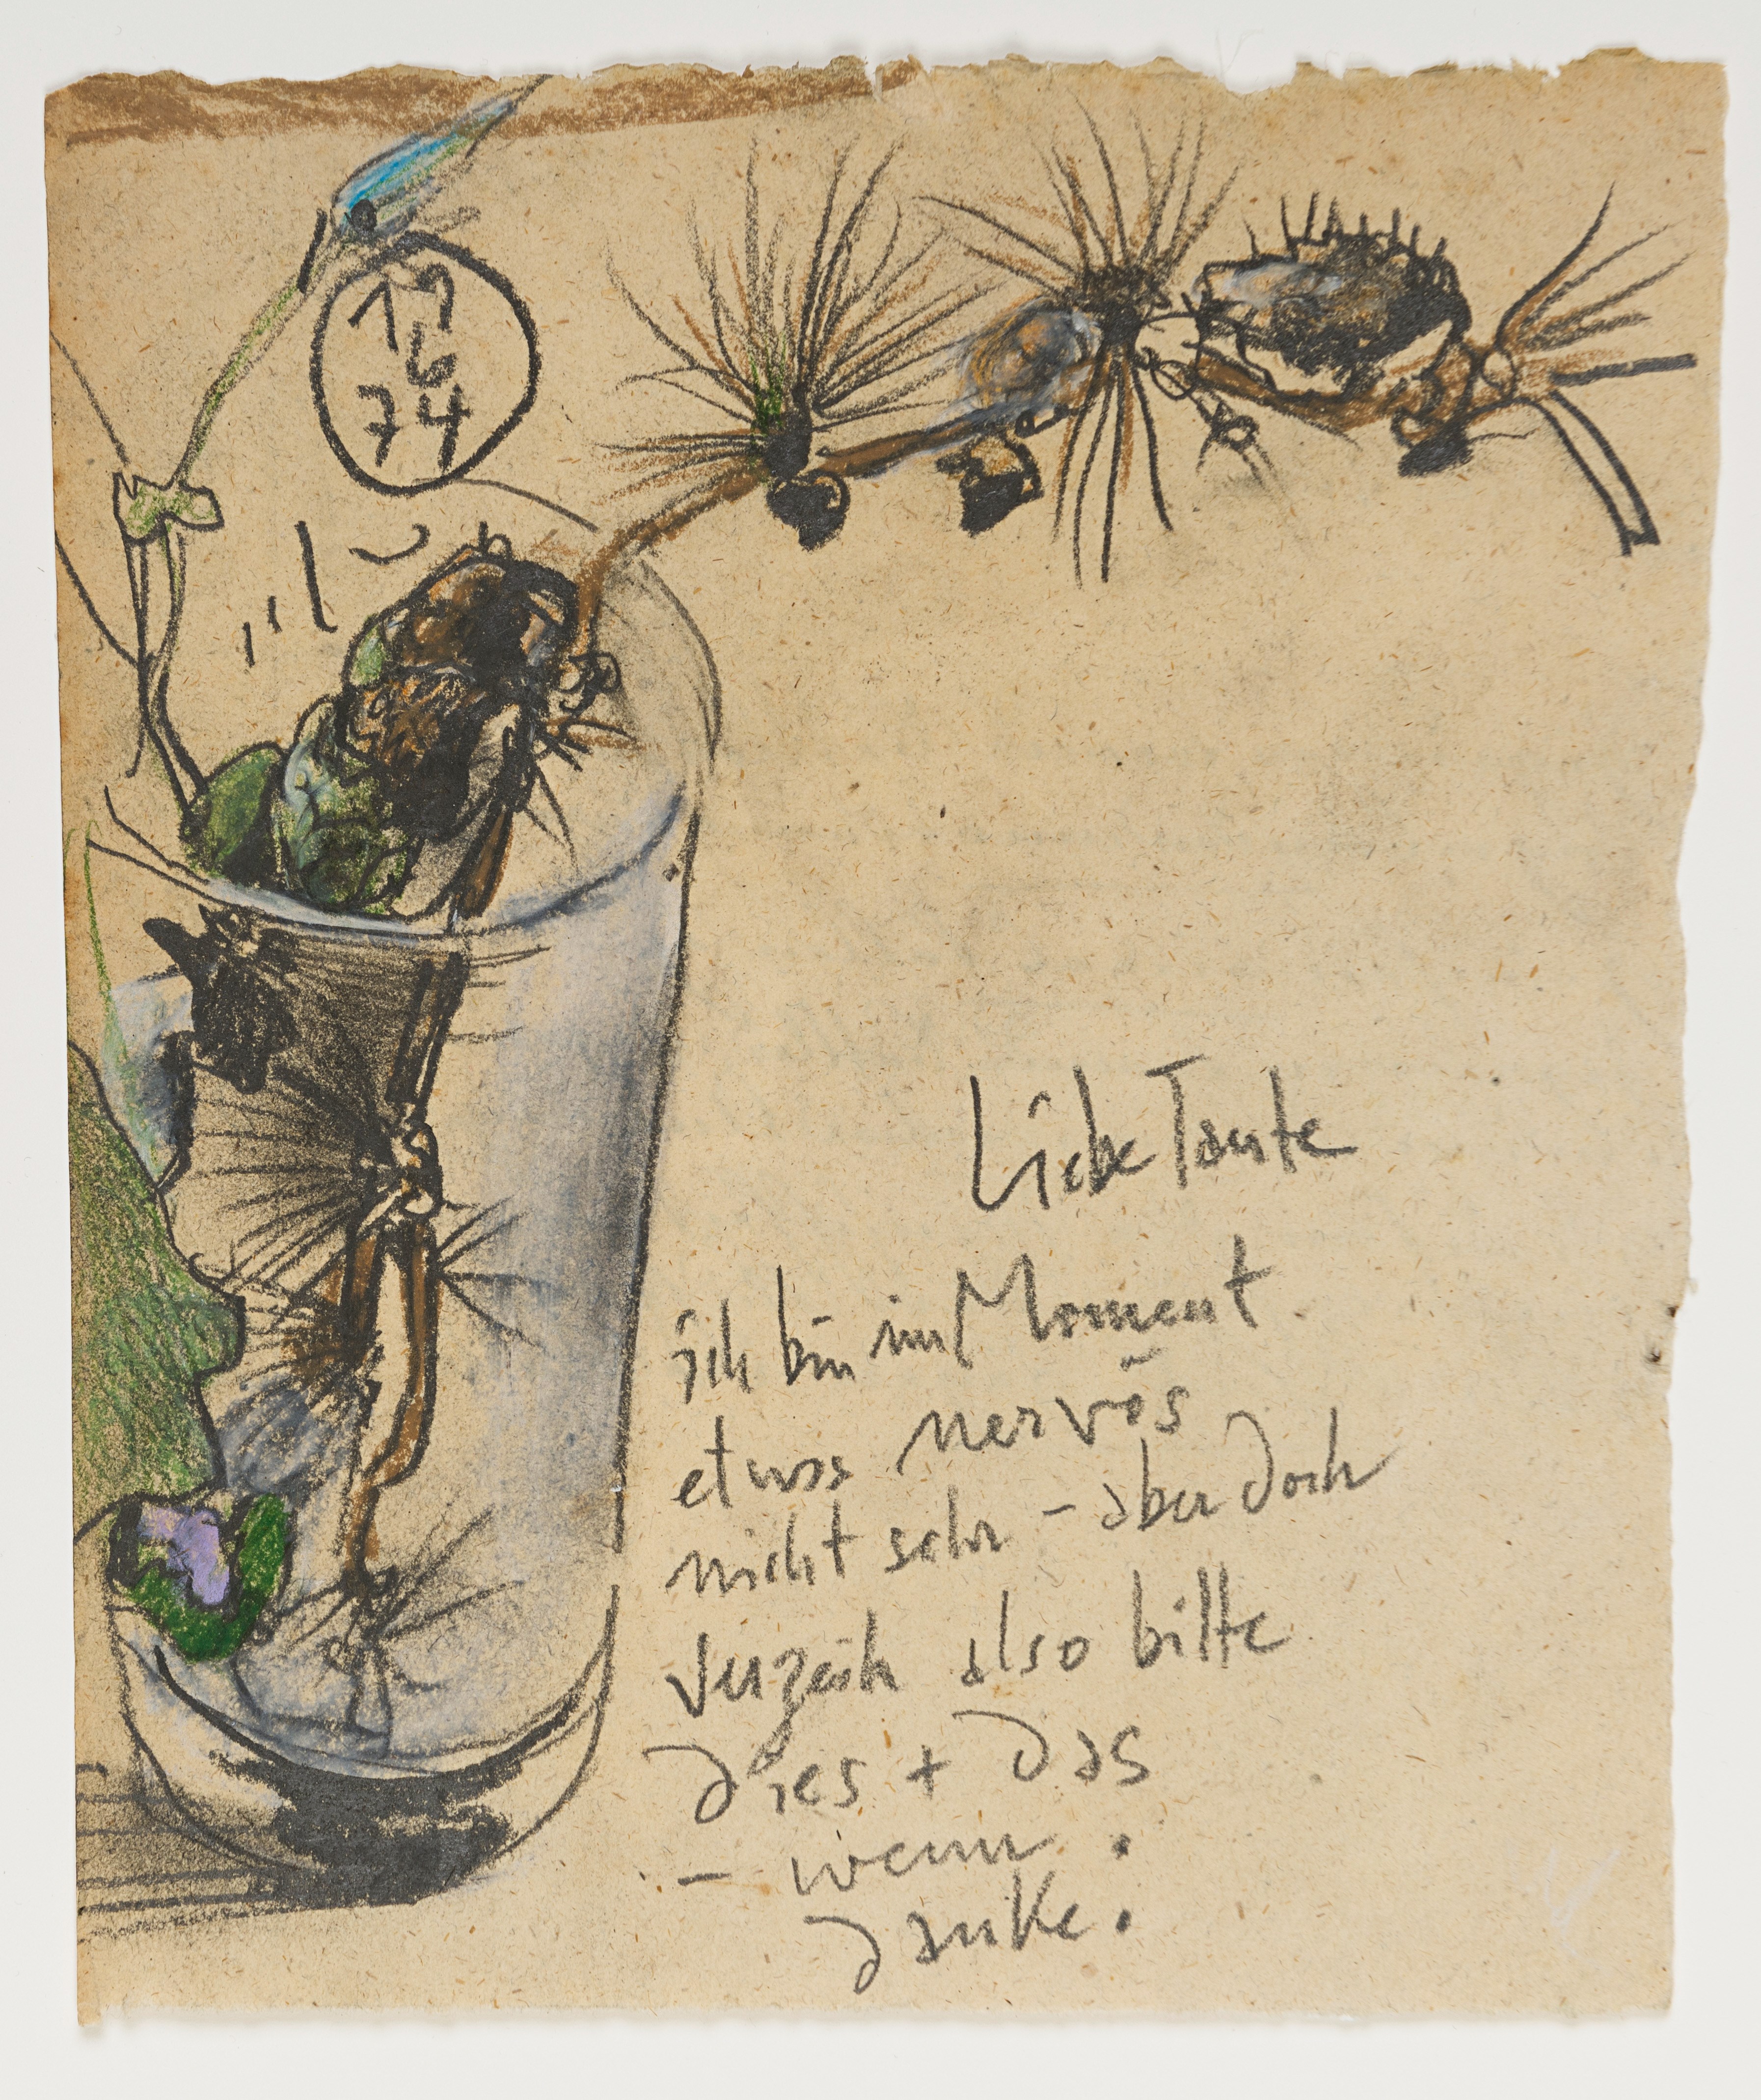 19
6
74
Liebe Tante
ich bin im Moment
etwas nervös
nicht sehr – aber doch
verzeih also bitte
dies + das
– wenn :
danke.